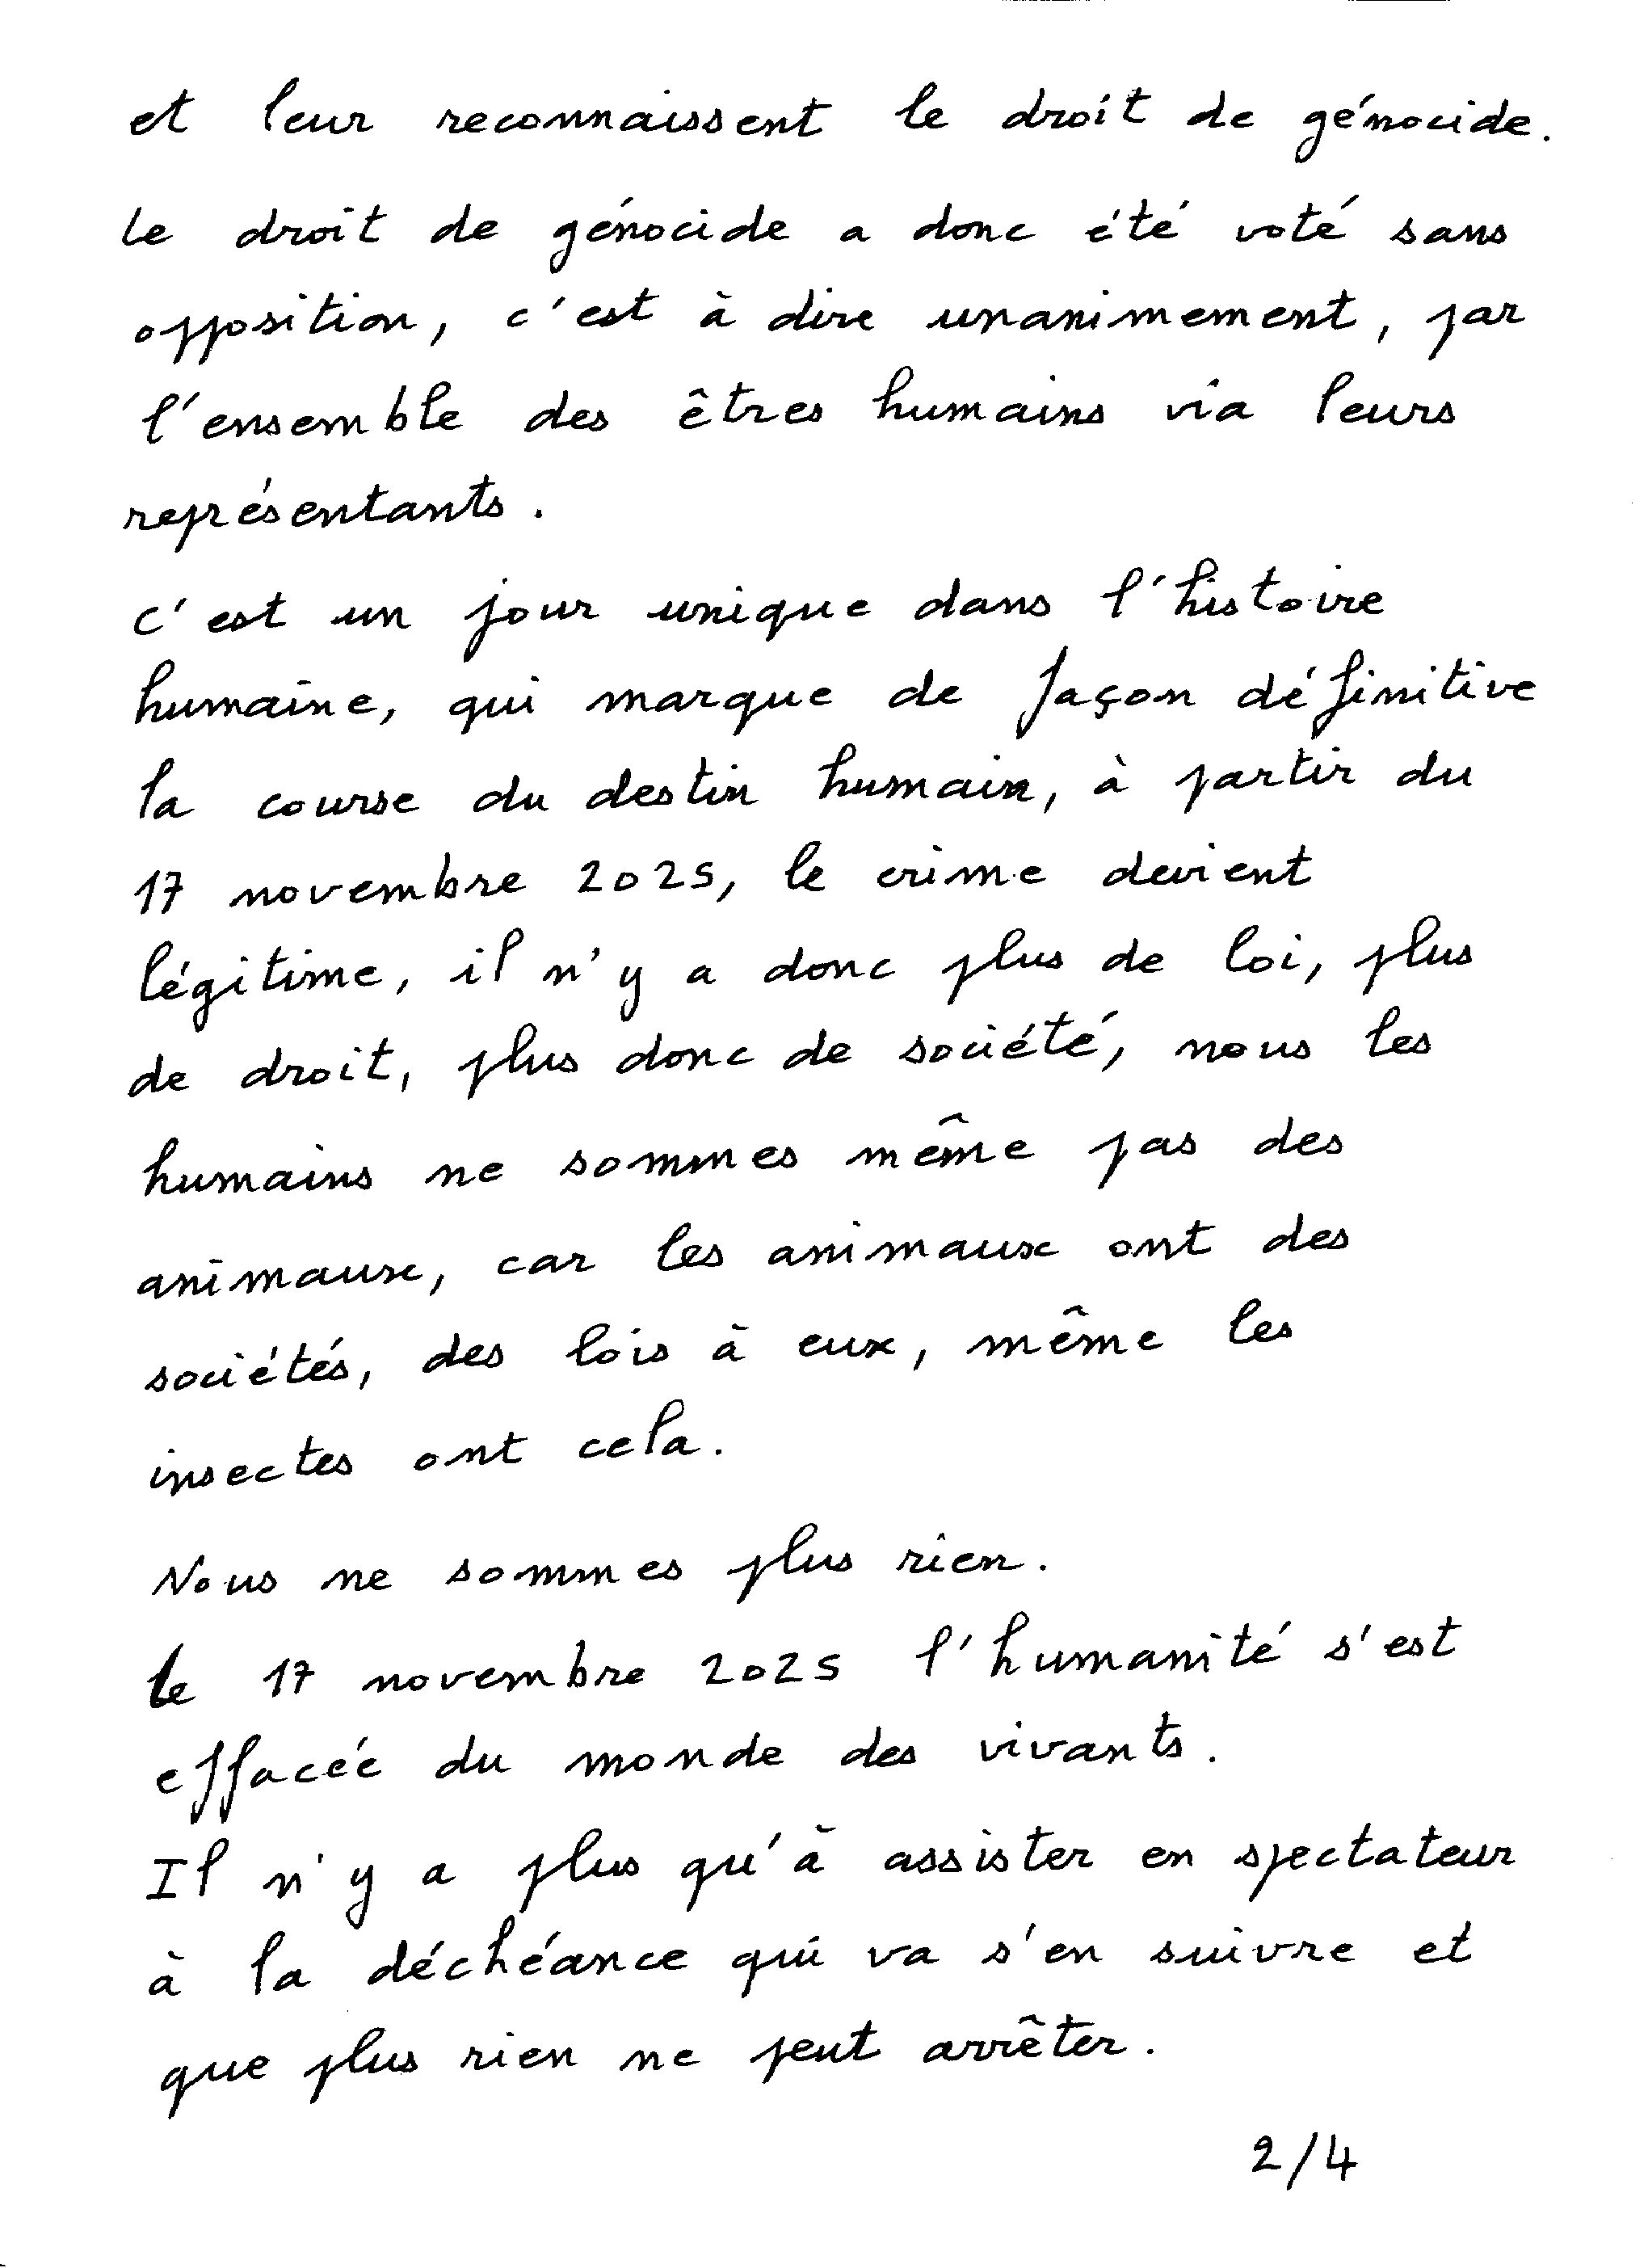 et leur reconnaissent le droit de génocide.
Le droit de génocide a donc été voté sans
opposition, c'est à dire unanimement, par
l'ensemble des êtres humains via leurs
représentants.
C'est un jour unique dans l'histoire
humaine, qui marque de façon définitive
la course du destin humain, à partir du
17 novembre 2025, le crime devient
légitime, il n'y a donc plus de loi, plus
de droit, plus donc de société, nous les
humains ne sommes même pas des
animaux, car les animaux ont des
sociétés, des lois à eux, même les
insectes ont cela.
Nous ne sommes plus rien.
Le 17 novembre 2025 l'humanité s'est
effacée du monde des vivants.
Il n'y a plus qu'à assister en spectateur
à la déchéance qui va s'en suivre et
que plus rien ne peut arrêter.
2/4